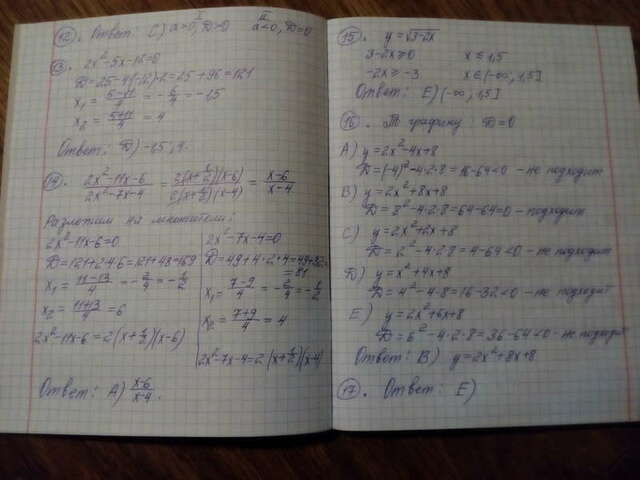 12. Ответ: C) a>0, D>0 a<0, D=0
13. 2x²-5x-12=0
D=25-4(-12)·2=25+96=121
x₁ = (5-11)/4 = -6/4 = -1,5
x₂ = (5+11)/4 = 4
Ответ: D) -1,5; 4.
14. (2x²-11x-6)/(2x²-7x-4) = 2(x+1/2)(x-6)/2(x+1/2)(x-4) = (x-6)/(x-4)
Разложим на множители:
2x²-11x-6=0
D=121+2·4·6=121+48=169
x₁ = (11-13)/4 = -2/4 = -1/2
x₂ = (11+13)/4 = 6
2x²-11x-6=2(x+1/2)(x-6)
2x²-7x-4=0
D=49+4·2·4=49+32=
=81
x₁ = (7-9)/4 = -2/4 = -1/2
x₂ = (7+9)/4 = 4
2x²-7x-4=2(x+1/2)(x-4)
Ответ: A) (x-6)/(x-4).
15. y=√3-2x
3-2x≥0 x≤1,5
-2x≥-3 x∈(-∞, 1,5]
Ответ: E) (-∞, 1,5]
16. графику: D=0
A) y=2x²-4x+8
D=(-4)²-4·2·8=16-64<0 - не подходит
B) y=2x²+8x+8
D=8²-4·2·8=64-64=0 - подходит
C) y=2x²+2x+8
D=2²-4·2·8=4-64<0 - не подходит
D) y=x²+4x+8
D=4²-4·8=16-32<0 - не подходит
E) y=2x²+6x+8
D=6²-4·2·8=36-64<0 - не подходит
Ответ: B) y=2x²+8x+8
17. Ответ: E)